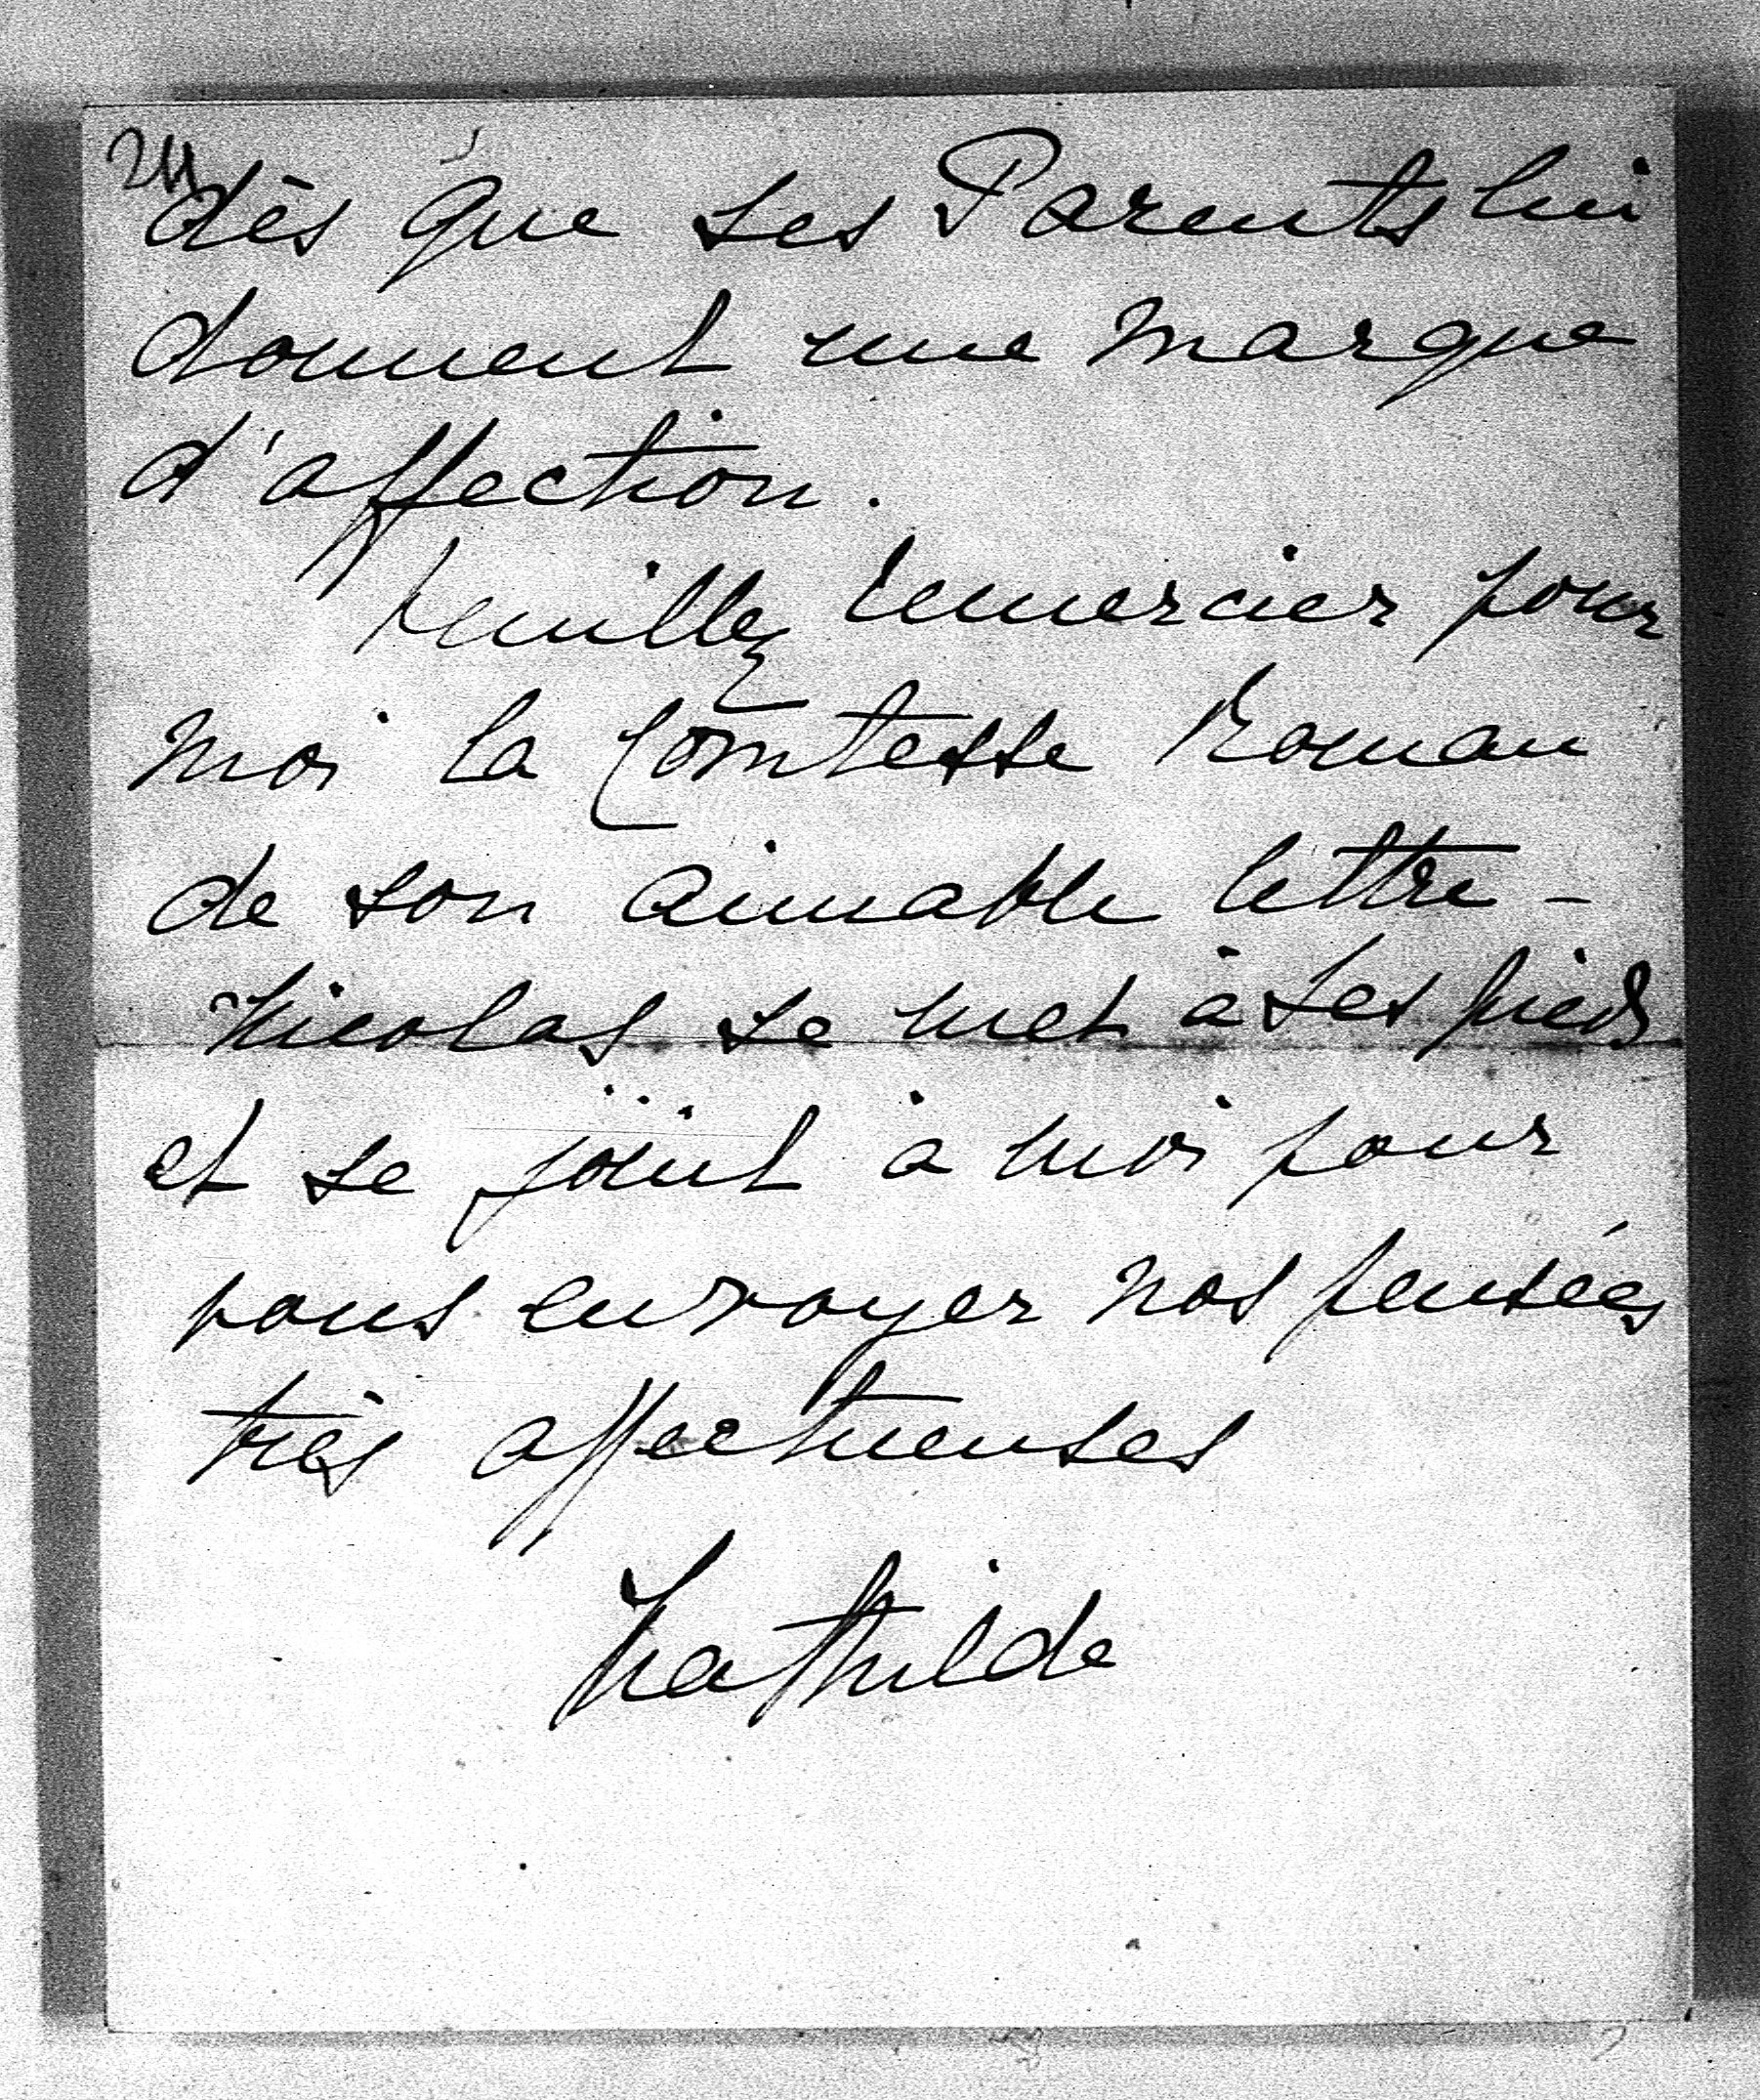 24
dès que ses Parents lui
donnent une marque
d'affection.
Veuillez remercier pour
moi la Comtesse Roman
de son aimable lettre -
Nicolas se met à ses pieds
et se joint à moi pour
vous envoyer nos pensées
très affectueuses
Mathilde